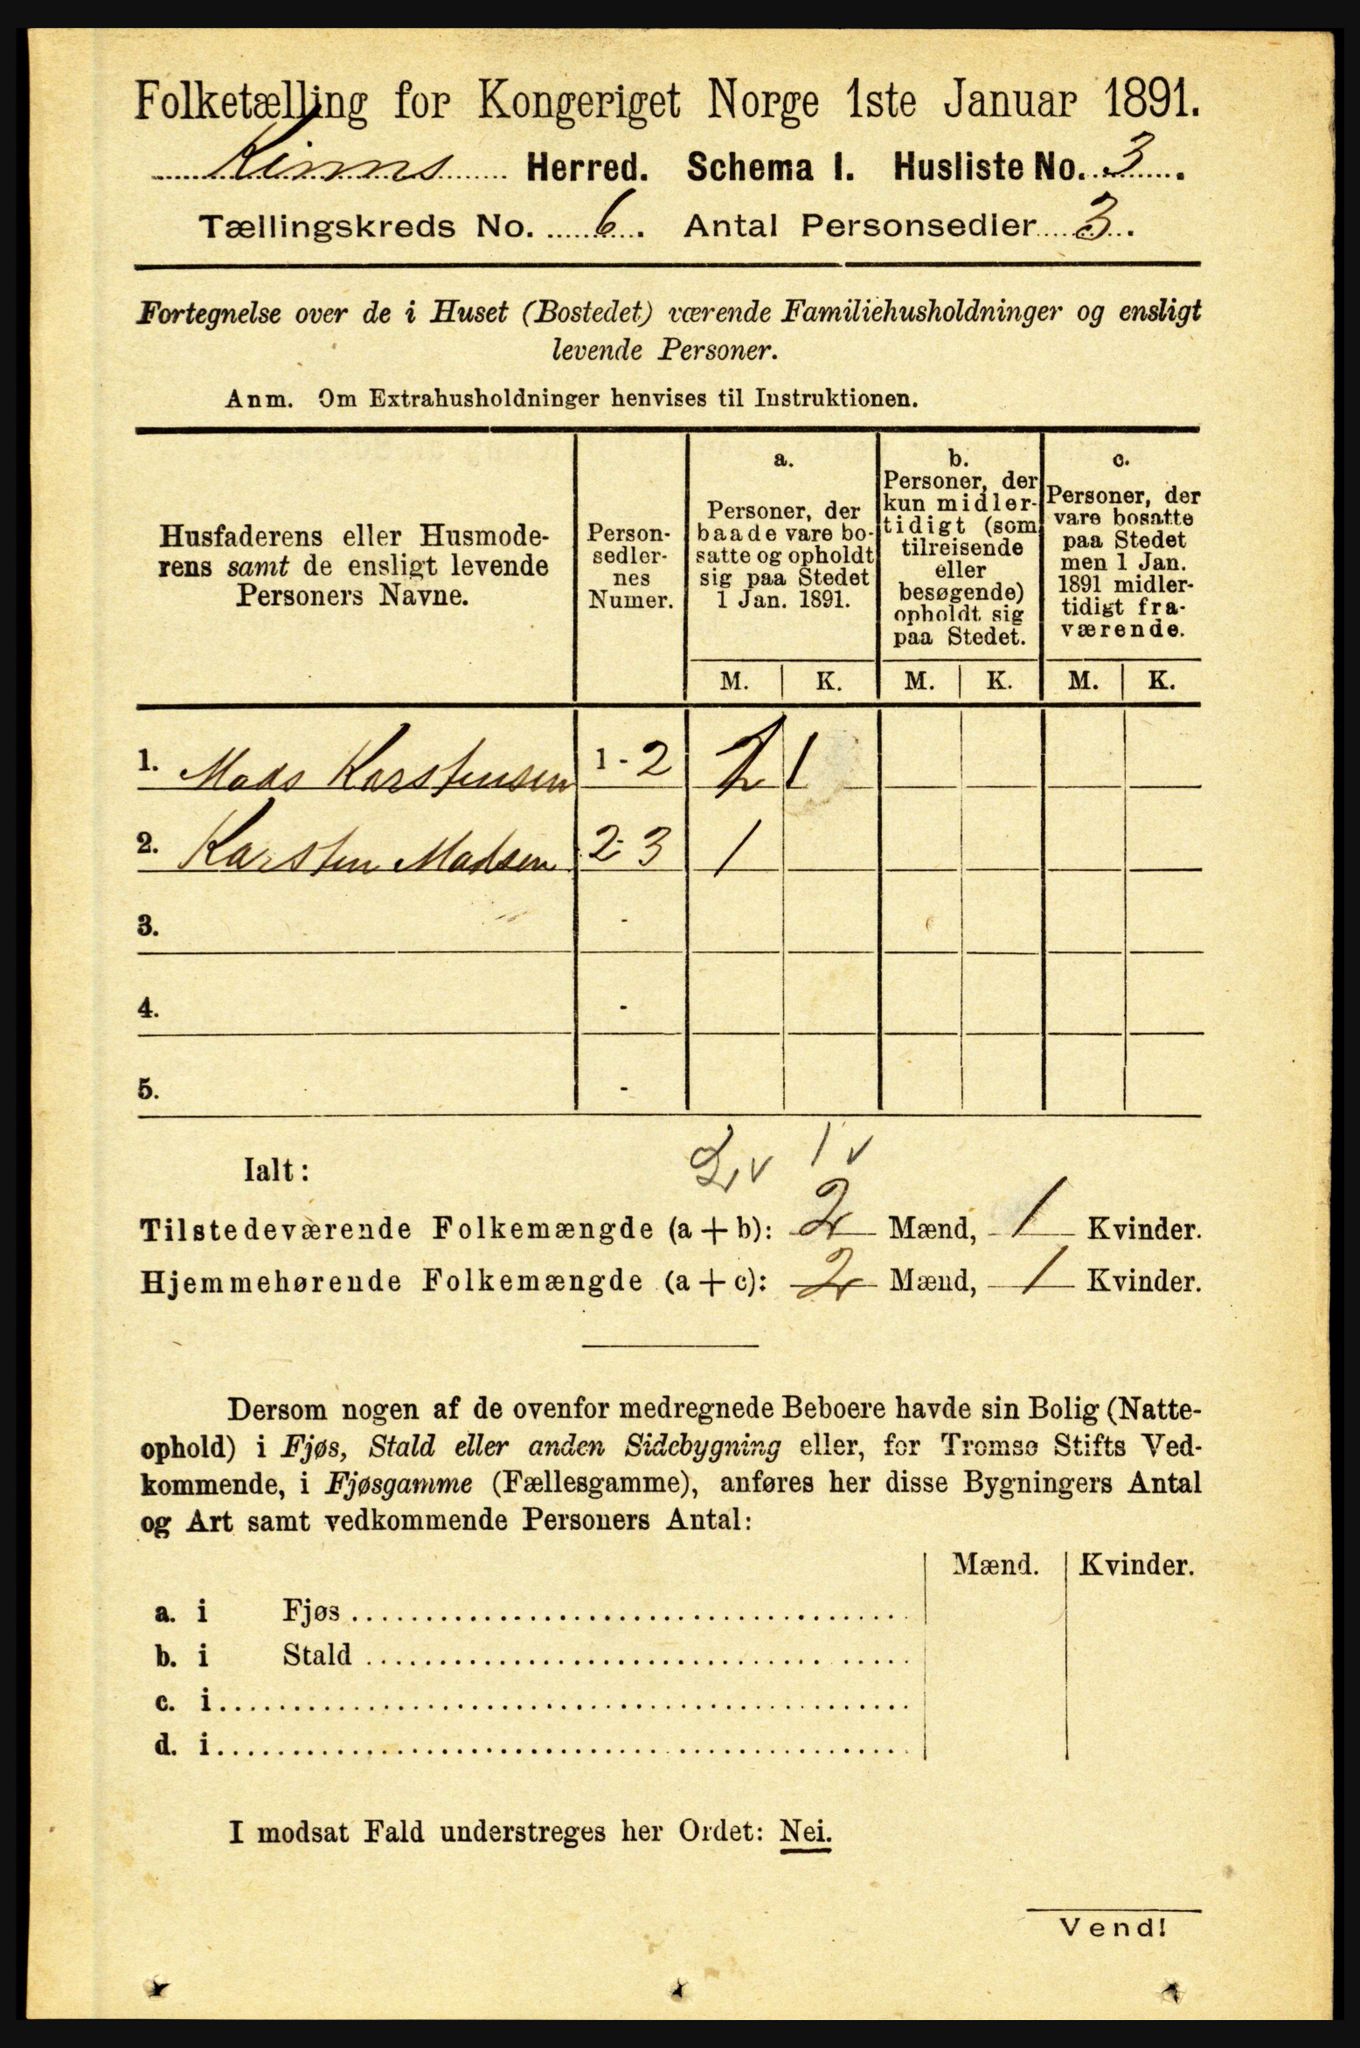 Folketælling for Kongeriget Norge 1ste Januar 1891.
Kinns Herred. Schema I. Husliste No. 3.
Tællingskreds No. 6. Antal Personsedler 3.
Fortegnelse over de i Huset (Bostedet) værende Familiehusholdninger og ensligt
levende Personer.
Anm. Om Extrahusholdninger henvises til Instruktionen.
Husfaderens eller Husmode-
rens samt de ensligt levende
Personers Navne.
Person-
sedler-
nes
Numer.
a.
Personer, der
baade vare bo-
satte og opholdt
sig paa Stedet
1 Jan. 1891.
b.
Personer, der
kun midler-
tidigt (som
tilreisende
eller
besøgende)
opholdt sig
paa Stedet.
c.
Personer, der
vare bosatte
paa Stedet
men 1 Jan.
1891 midler-
tidigt fra-
værende.
M. K. M. K. M. K.
1. Mads Karstensen 1 - 2 1
2. Karsten Madsen 2 - 3 1
3. -
4. -
5. -
2 v 1 v
Ialt:
Tilstedeværende Folkemængde (a + b): 2 Mænd, 1 Kvinder.
Hjemmehørende Folkemængde (a + c): 2 Mænd, 1 Kvinder.
Dersom nogen af de ovenfor medregnede Beboere havde sin Bolig (Natte-
ophold) i Fjøs, Stald eller anden Sidebygning eller, for Tromsø Stifts Ved-
kommende, i Fjøsgamme (Fællesgamme), anføres her disse Bygningers Antal
og Art samt vedkommende Personers Antal:
Mænd. Kvinder.
a. i Fjøs
b. i Stald
c. i
d. i
I modsat Fald understreges her Ordet: Nei.
Vend!